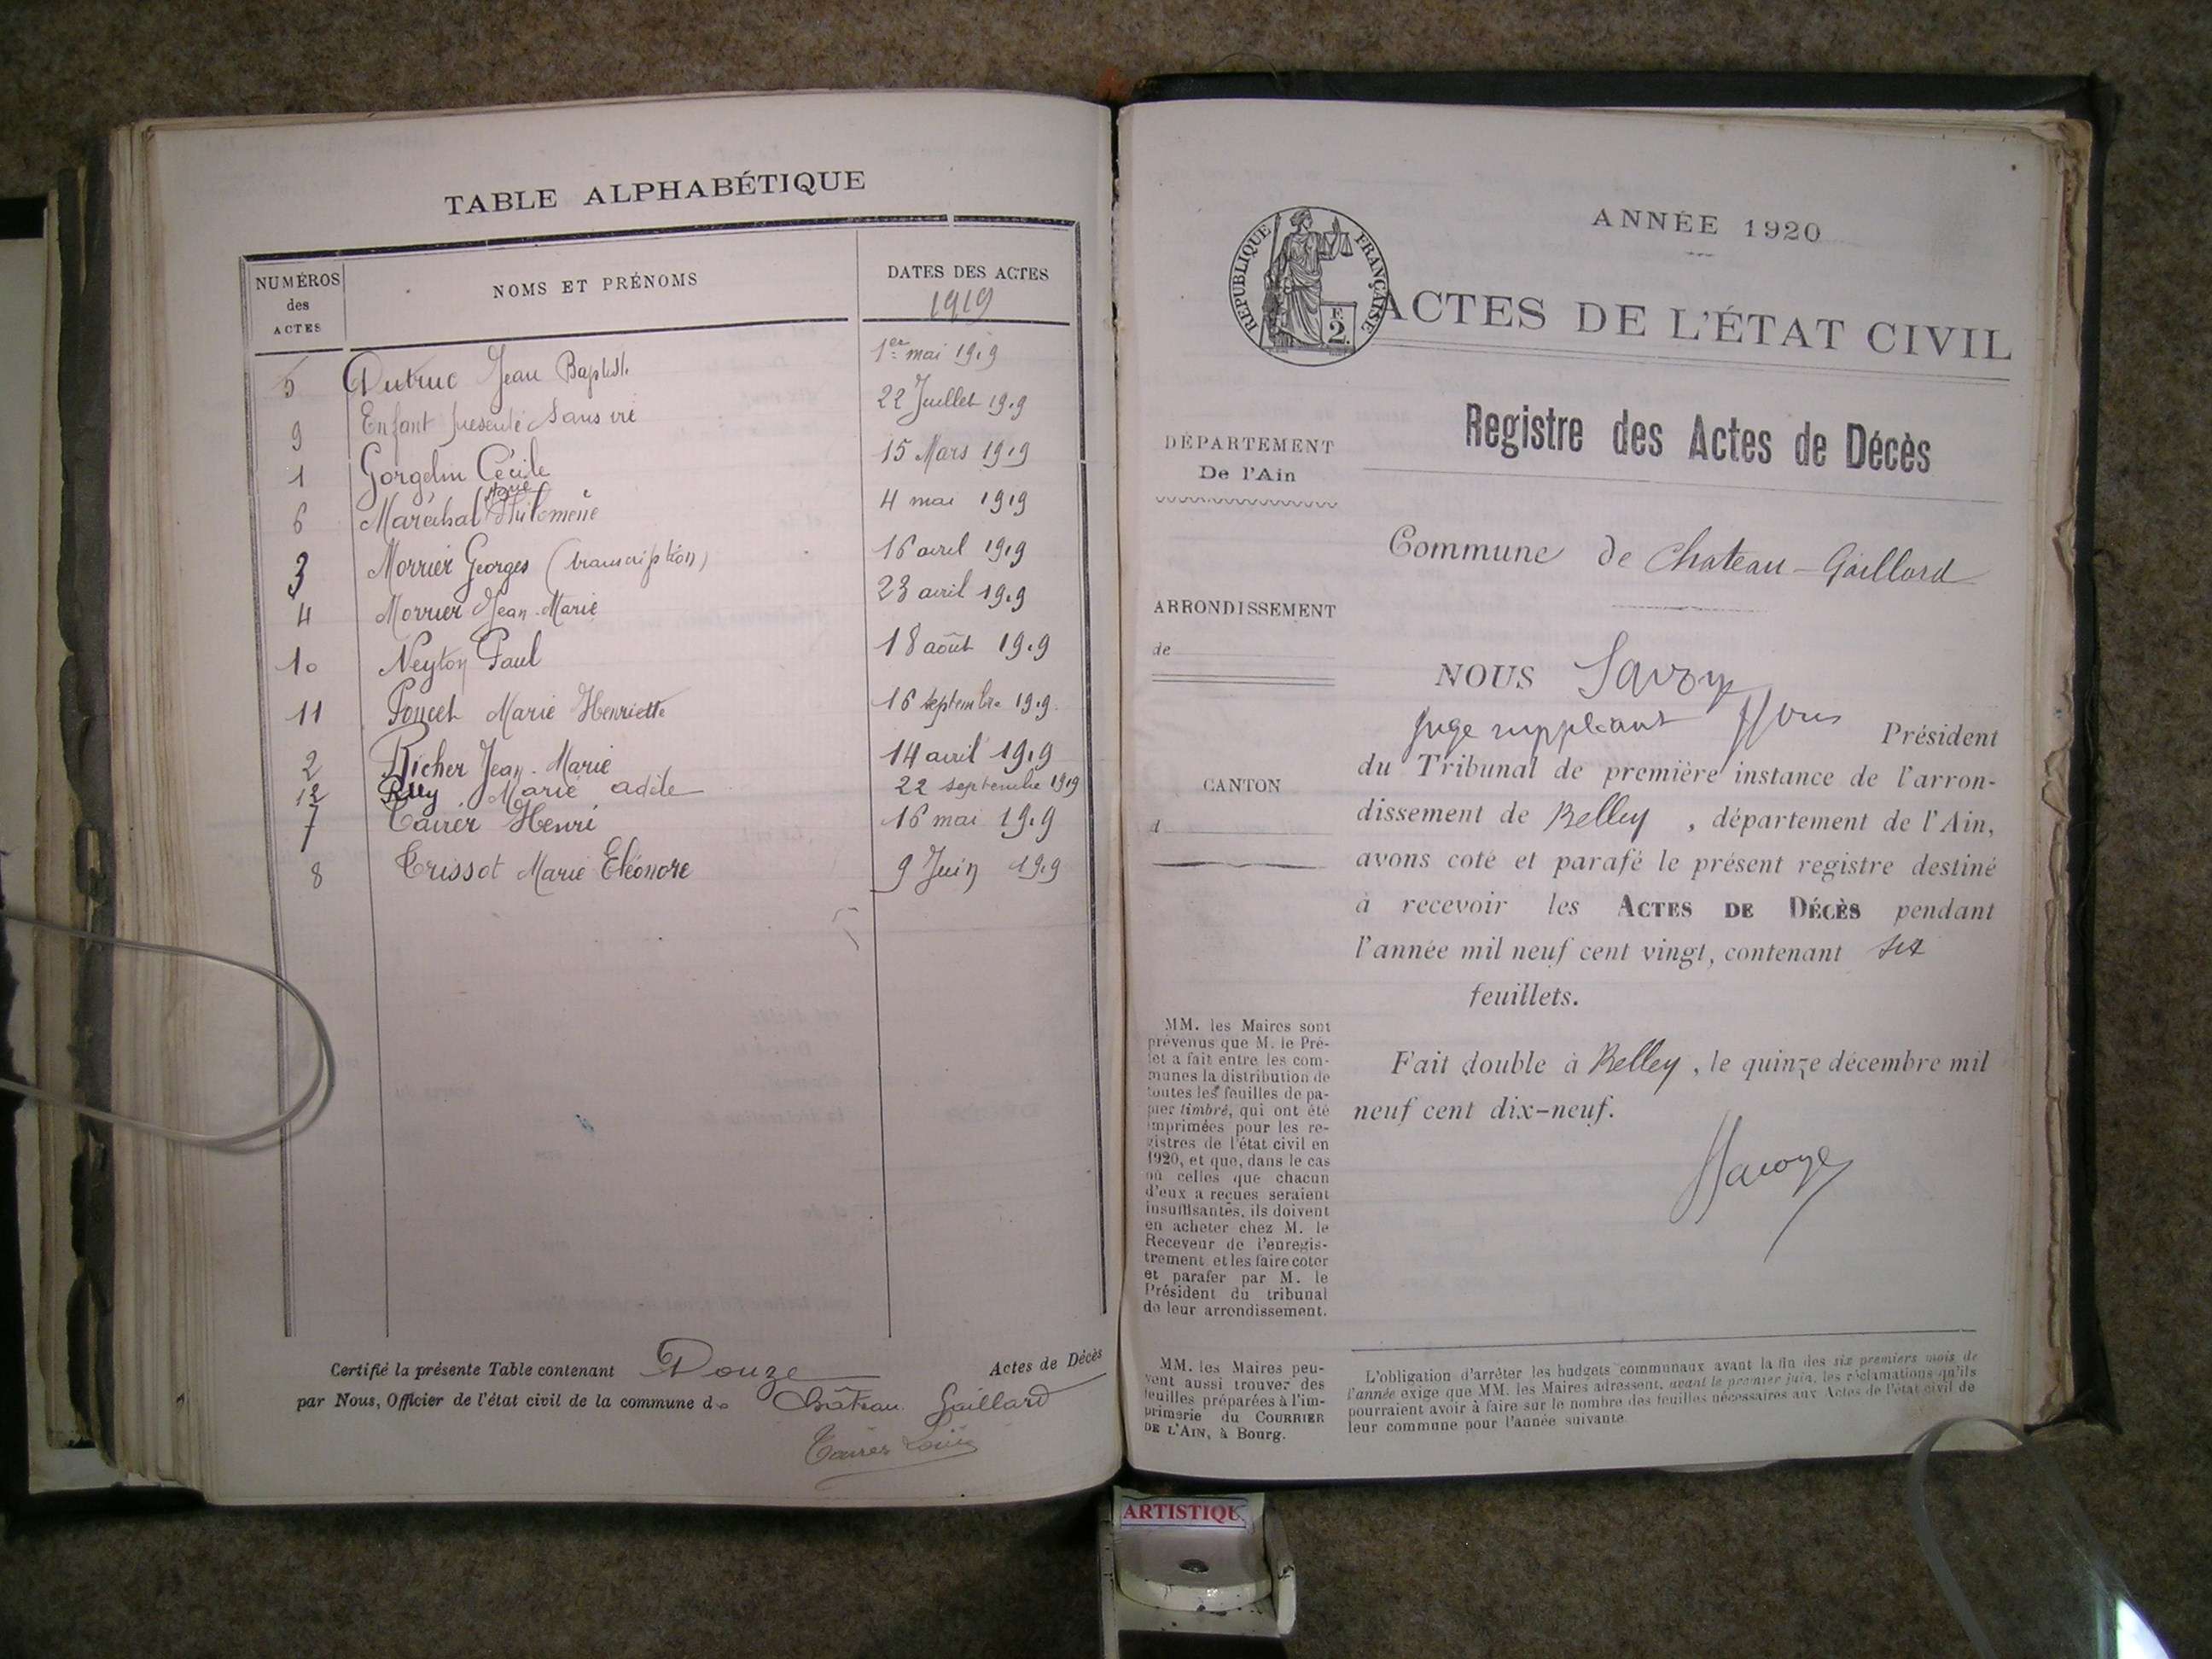 TABLE ALPHABÉTIQUE
NUMÉROS des ACTES
NOMS ET PRÉNOMS
DATES DES ACTES
1919
5 Dutruc Jean Baptiste 1er mai 1919
9 Enfant présenté sans vie 22 Juillet 1919
1 Gorgelin Cécile 15 Mars 1919
6 Maréchal Marie Philomène 4 mai 1919
3 Morrier Georges (transcription) 16 avril 1919
4 Morrier Jean-Marie 23 avril 1919
10 Neyton Paul 18 août 1919
11 Poncet Marie Henriette 16 septembre 1919.
2 Richer Jean-Marie 14 avril 1919
12 Ruy Marie adèle 22 septembre 1919
7 Tavier Henri 16 mai 1919
8 Trissot Marie Eléonore 9 Juin 1919
Certifié la présente Table contenant Douze Actes de Décès
par Nous, Officier de l'état civil de la commune de Château Gaillard
RÉPUBLIQUE FRANÇAISE
E 2.
ANNÉE 1920
ACTES DE L'ÉTAT CIVIL
Registre des Actes de Décès
DÉPARTEMENT
De l'Ain
ARRONDISSEMENT
de
CANTON
d
Commune de Chateau-Gaillard
NOUS Savoye
Juge suppléant pour Président
du Tribunal de première instance de l'arron-
dissement de Belley, département de l'Ain,
avons coté et parafé le présent registre destiné
à recevoir les ACTES DE DÉCÈS pendant
l'année mil neuf cent vingt, contenant six
feuillets.
Fait double à Belley, le quinze décembre mil
neuf cent dix-neuf.
Savoye
MM. les Maires sont
prévenus que M. le Pré-
fet a fait entre les com-
munes la distribution de
toutes les feuilles de pa-
pier timbré, qui ont été
imprimées pour les re-
gistres de l'état civil en
1920, et que, dans le cas
où celles que chacun
d'eux a reçues seraient
insuffisantes, ils doivent
en acheter chez M. le
Receveur de l'enregis-
trement et les faire coter
et parafer par M. le
Président du tribunal
de leur arrondissement.
MM. les Maires peu-
vent aussi trouver des
feuilles préparées à l'im-
primerie du COURRIER
DE L'AIN, à Bourg.
L'obligation d'arrêter les budgets communaux avant la fin des six premiers mois de
l'année exige que MM. les Maires adressent, avant le premier juin, les réclamations qu'ils
pourraient avoir à faire sur le nombre des feuilles nécessaires aux Actes de l'état civil de
leur commune pour l'année suivante.
ARTISTIQU